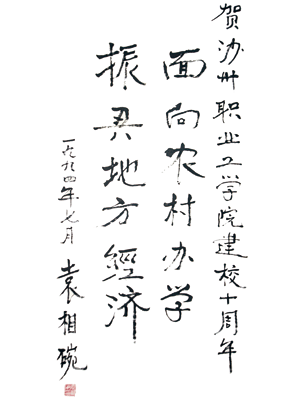 贺沙州职业工学院建校十周年
面向农村办学
振兴地方經济
一九九四年七月 袁相碗